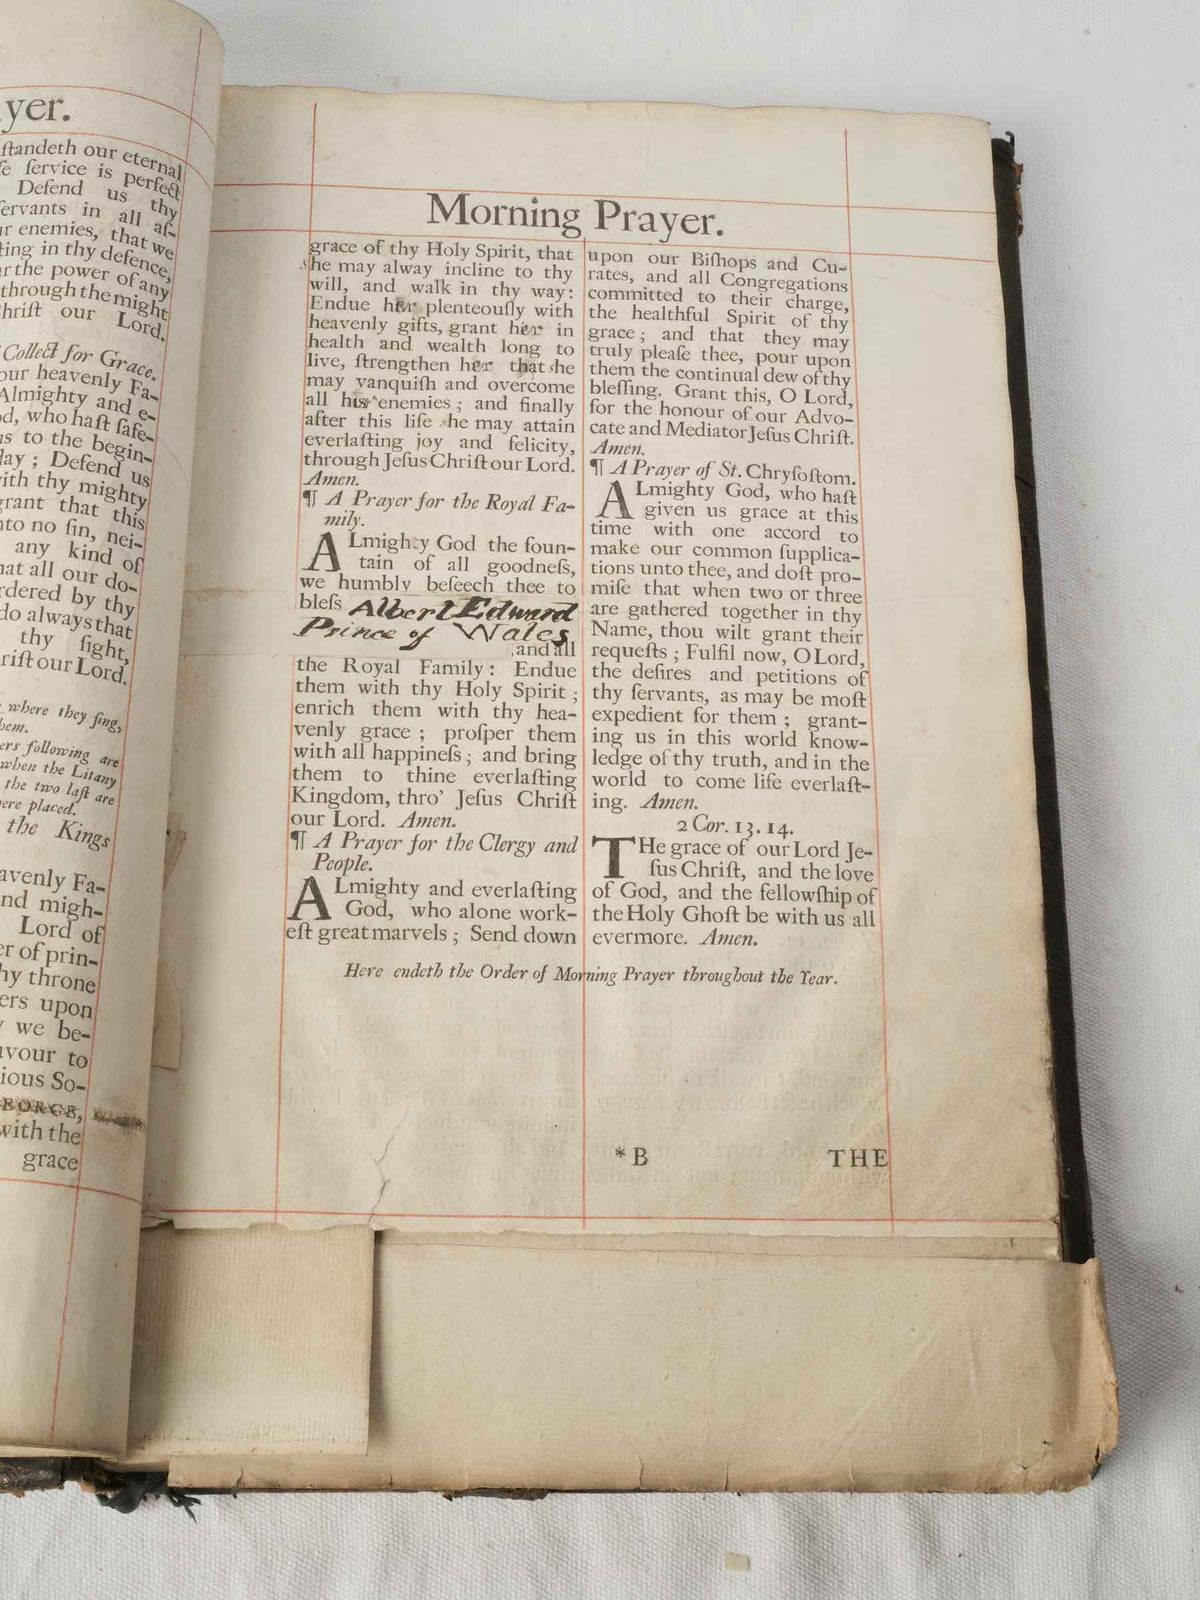 yer.
ſtandeth our eternal
ſe ſervice is perfect
Defend us thy
ſervants in all aſ-
ur enemies, that we
ting in thy defence,
ar the power of any
through the might
hriſt our Lord.
Collect for Grace.
our heavenly Fa-
Almighty and e-
d, who haſt ſafe-
us to the begin-
day ; Defend us
with thy mighty
grant that this
nto no ſin, nei-
any kind of
hat all our do-
rdered by thy
do always that
thy ſight,
riſt our Lord.
where they ſing,
hem.
ers following are
when the Litany
the two laſt are
ere placed.
the Kings
avenly Fa-
nd migh-
Lord of
er of prin-
hy throne
ers upon
we be-
avour to
ious So-
EORGE,
with the
grace
Morning Prayer.
grace of thy Holy Spirit, that
she may alway incline to thy
will, and walk in thy way:
Endue her plenteouſly with
heavenly gifts, grant her in
health and wealth long to
live, ſtrengthen her that she
may vanquiſh and overcome
all his enemies ; and finally
after this life she may attain
everlaſting joy and felicity,
through Jeſus Chriſt our Lord.
Amen.
¶ A Prayer for the Royal Fa-
mily.
ALmighty God the foun-
tain of all goodneſs,
we humbly beſeech thee to
bleſs Albert Edward
Prince of Wales
, and all
the Royal Family: Endue
them with thy Holy Spirit ;
enrich them with thy hea-
venly grace ; proſper them
with all happineſs ; and bring
them to thine everlaſting
Kingdom, thro' Jeſus Chriſt
our Lord. Amen.
¶ A Prayer for the Clergy and
People.
ALmighty and everlaſting
God, who alone work-
eſt great marvels ; Send down
upon our Biſhops and Cu-
rates, and all Congregations
committed to their charge,
the healthful Spirit of thy
grace ; and that they may
truly pleaſe thee, pour upon
them the continual dew of thy
bleſſing. Grant this, O Lord,
for the honour of our Advo-
cate and Mediator Jeſus Chriſt.
Amen.
¶ A Prayer of St. Chryſoſtom.
ALmighty God, who haſt
given us grace at this
time with one accord to
make our common ſupplica-
tions unto thee, and doſt pro-
miſe that when two or three
are gathered together in thy
Name, thou wilt grant their
requeſts ; Fulfil now, O Lord,
the deſires and petitions of
thy ſervants, as may be moſt
expedient for them ; grant-
ing us in this world know-
ledge of thy truth, and in the
world to come life everlaſt-
ing. Amen.
2 Cor. 13. 14.
THe grace of our Lord Je-
ſus Chriſt, and the love
of God, and the fellowſhip of
the Holy Ghoſt be with us all
evermore. Amen.
Here endeth the Order of Morning Prayer throughout the Year.
*B THE